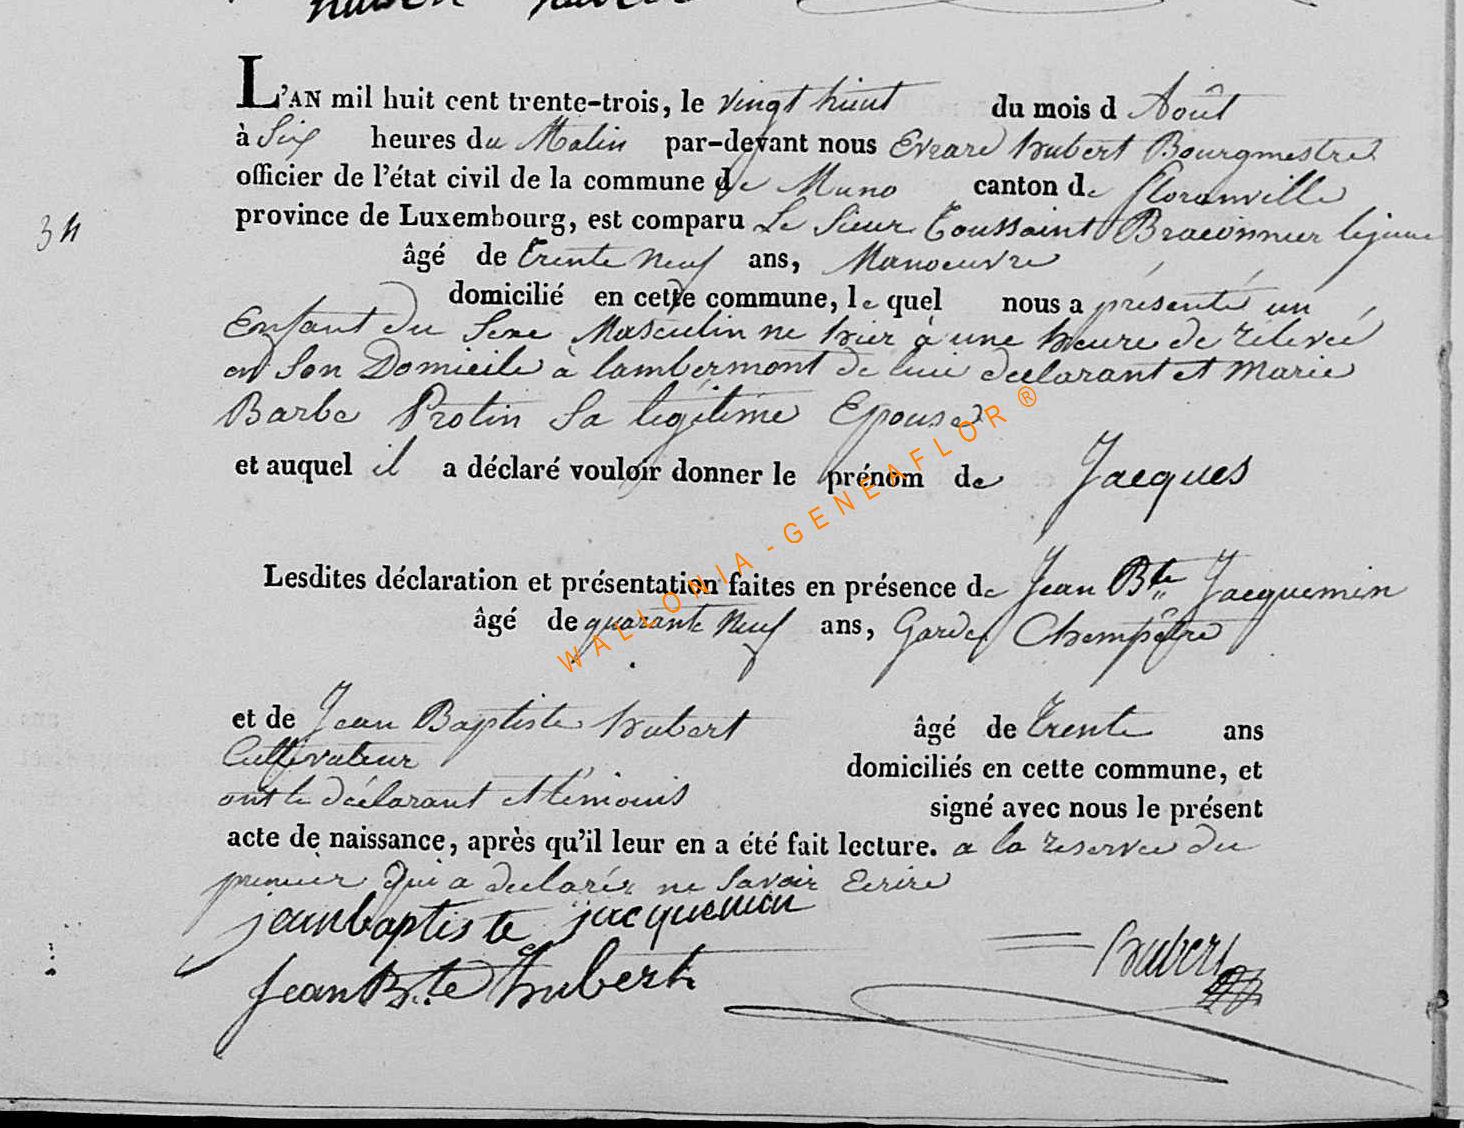 L'AN mil huit cent trente-trois, le vingt huit du mois d Août
à Six heures du Matin par-devant nous Evrard hubert Bourgmestre
officier de l'état civil de la commune de Muno canton de florenville
province de Luxembourg, est comparu Le Sieur Toussaint Braconnier lejeune
34
âgé de trente neuf ans, Manoeuvre
domicilié en cette commune, le quel nous a présenté un
Enfant du Sexe Masculin ne hier à une heure de relevée
en Son Domicile à lambermont de lui declarant et Marie
Barbe Protin Sa legitime Epouse
et auquel il a déclaré vouloir donner le prénom de Jacques
Lesdites déclaration et présentation faites en présence de Jean Bte Jacquemin
âgé de quarante Neuf ans, Garde Champêtre
et de Jean Baptiste hubert âgé de trente ans
Cultivateur domiciliés en cette commune, et
ont le déclarant et témoins signé avec nous le présent
acte de naissance, après qu'il leur en a été fait lecture. a la reserve du
premier qui a declaré ne Savoir Ecrire
jeanbaptiste jacquemin
Jean Bte hubert
hubert
WALLONIA - GENEAFLOR ®